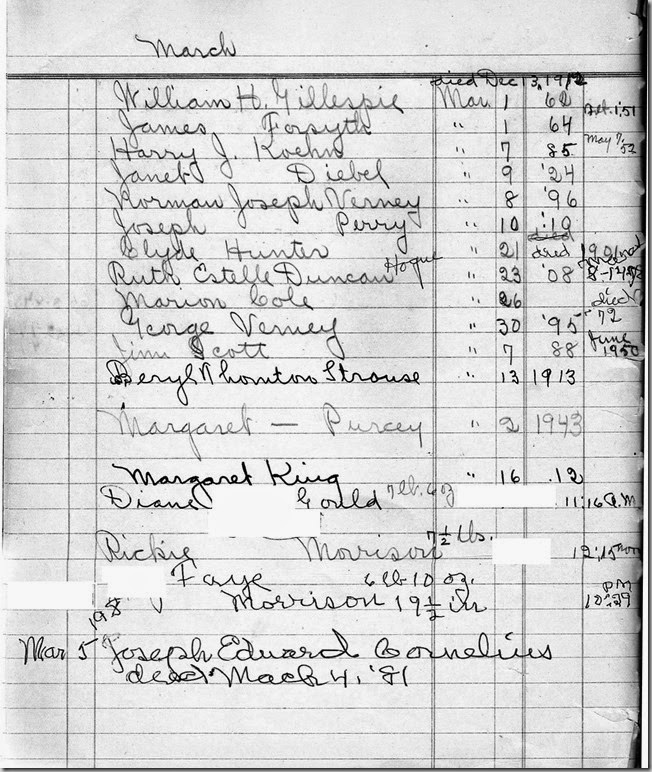 March
died Dec 13, 1912
William H. Gillespie Mar. 1 62
James Forsyth " 1 64 Oct. 1, '51
Harry J. Koehn " 7 85 May 7/52
Janet Diebel " 9 '24
Norman Joseph Verney " 8 '96
Joseph Perry " 10 '19
Clyde Hunter " 21 died
Ruth Estelle Duncan Hogue " 23 '08
Marion Cole " 26 died
George Verney " 30 '95 '72
Jim Scott " 7 88 June 1950
Beryl Thornton Strause " 13 1913
Margaret — Purcey " 2 1943
Margaret King " 16 .12
Diane Gould 7 lb. 6 oz 11:16 A.M.
Richie Morrison 7 1/2 lbs. 12:15 noon
Faye 6 lb 10 oz.
Morrison 19 1/2 in P.M. 10:29
Mar 5 Joseph Eduard Cornelius
died Mach 4, '81